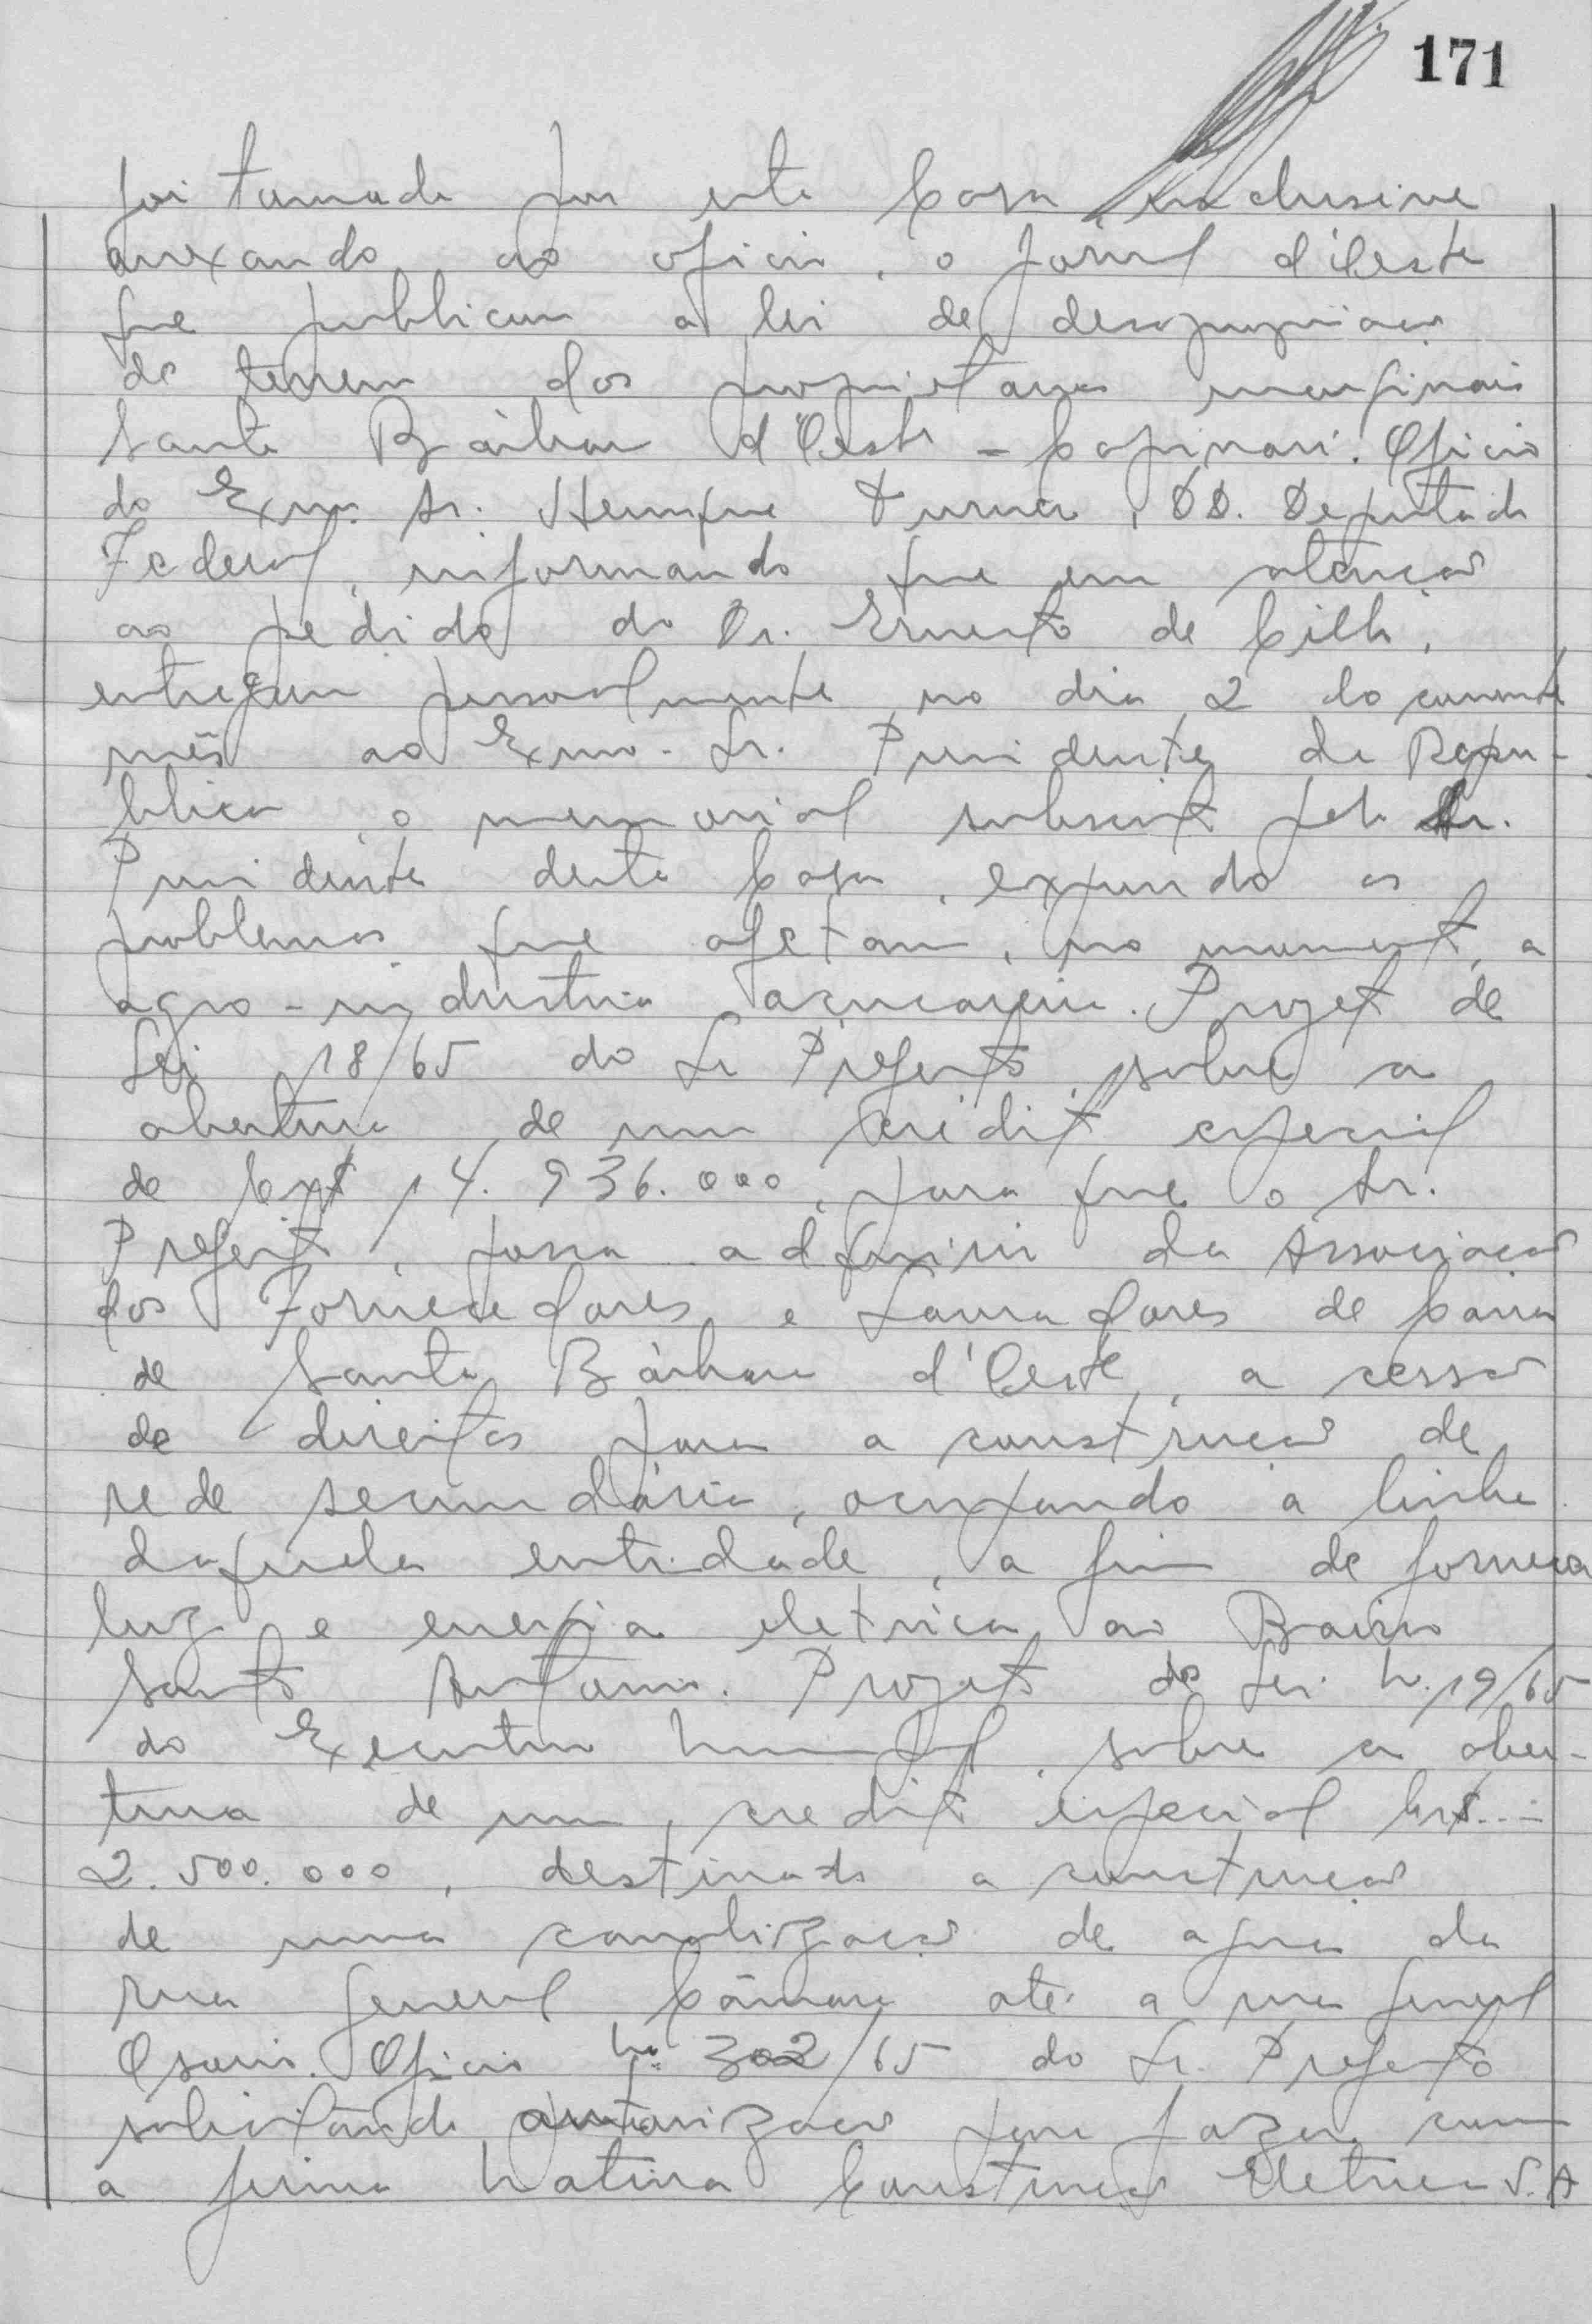 171
foi tomada por esta Casa inclusive
anexando ao oficio, o jornal d'Oeste
que publicou a lei de desapropriação
de terreno dos proprietarios marginais
Santa Bárbara d'Oeste - Capivari. Oficio
do Exmo. Sr. Henrique Turner, DD. Deputado
Federal, informando que em atenção
ao pedido do Dr. Ernesto de Cillo,
entregou pessoalmente, no dia 2 do corrente
mês ao Exmo. Sr. Presidente da Repu-
blica, o memorial subscrito pelo Sr.
Presidente desta Casa, expondo os
problemas que afetam, no momento, a
agro-industria açucareira. Projeto de
Lei 18/65 do Sr Prefeito, sobre a
abertura de um crédito especial
de Cr$ 14.936.000, para que o Sr.
Prefeito, possa adquirir da Associação
dos Fornecedores e Lavradores de Cana
de Santa Bárbara d'Oeste, a cessão
de direitos para a construção de
rede secundária, ocupando a linha
daquela entidade, a fim de fornecer
luz e energia eletrica ao Bairro
Santo Antonio. Projeto de Lei n. 19/65
do Executivo Municipal, sobre a aber-
tura de um credito especial Cr$...
2.500.000, destinado a construção
de uma canalização de agua da
rua General Câmara até a rua General
Osorio. Oficio nº 302/65 do Sr. Prefeito
solicitando autorização para fazer com
a firma Matina Construção Eletrica S.A